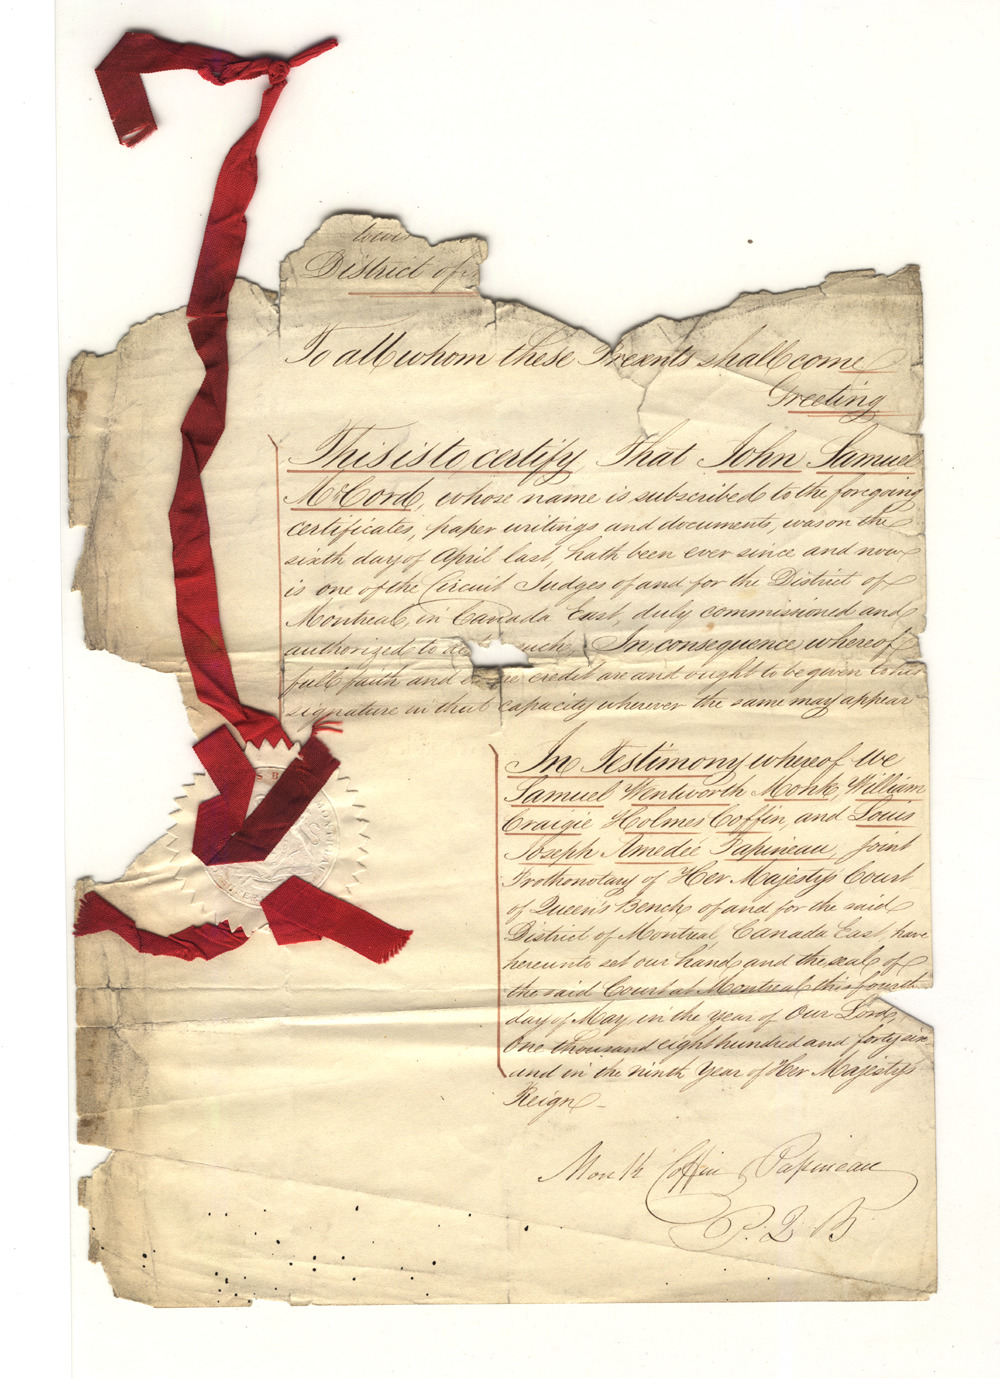 District of
To all whom these Presents shall come
Greeting
This is to certify That John Samuel
McCord, whose name is subscribed to the foregoing
certificates, paper writings and documents, was on the
sixth day of April last, hath been ever since and now
is one of the Circuit Judges of and for the District of
Montreal, in Canada East, duly commissioned and
authorized to act such. In consequence whereof
full faith and credit are and ought to be given to his
signature in that capacity wherever the same may appear
In Testimony whereof We
Samuel Wentworth Monk, William
Craigie Holmes Coffin, and Louis
Joseph Amedée Papineau, Joint
Prothonotary of Her Majesty's Court
of Queen's Bench of and for the said
District of Montreal, Canada East, have
hereunto set our hand and the seal of
the said Court at Montreal this fourth
day of May, in the year of Our Lord,
One thousand eight hundred and forty six
and in the ninth Year of Her Majesty's
Reign -
Monk Coffin & Papineau
P. Q. B.